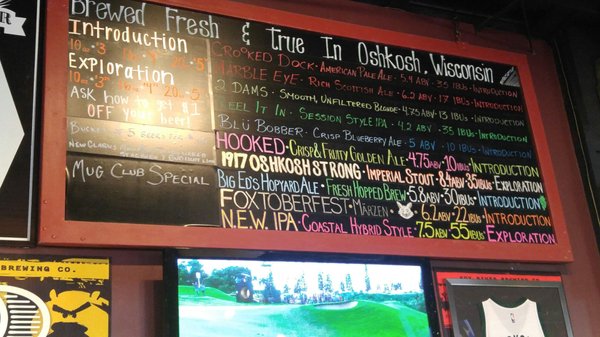 Brewed Fresh & True In Oshkosh, Wisconsin
Introduction
10oz $3 16oz 20oz
Exploration
10oz 16oz 20oz
Ask how to get a $1
OFF your beer!
New Glarus
Mug Club Special
Crooked Dock · American Pale Ale · 5.4 ABV · 35 IBUs · Introduction
Marble Eye · Rich Scottish Ale · 6.2 ABV · 17 IBUs · Introduction
2 Dams · Smooth, Unfiltered Blonde · 4.75 ABV 13 IBUs · Introduction
Reel It In · Session Style IPA · 4.2 ABV · 35 IBUs · Introduction
Blü Bobber · Crisp Blueberry Ale · 5 ABV · 10 IBUs · Introduction
HOOKED · Crisp & Fruity Golden Ale · 4.75 ABV 10 IBUs · INTRODUCTION
1917 OSHKOSH STRONG · Imperial Stout · 8.4 ABV · 35 IBUs · Exploration
Big Ed's Hopyard Ale · Fresh Hopped Brew · 5.8 ABV · 30 IBUs · Introduction
FOXTOBERFEST · Märzen · 6.2 ABV 22 IBUs · Introduction
N.E.W. IPA · Coastal Hybrid Style · 7.5 ABV 55 IBUs · Exploration
BREWING CO.